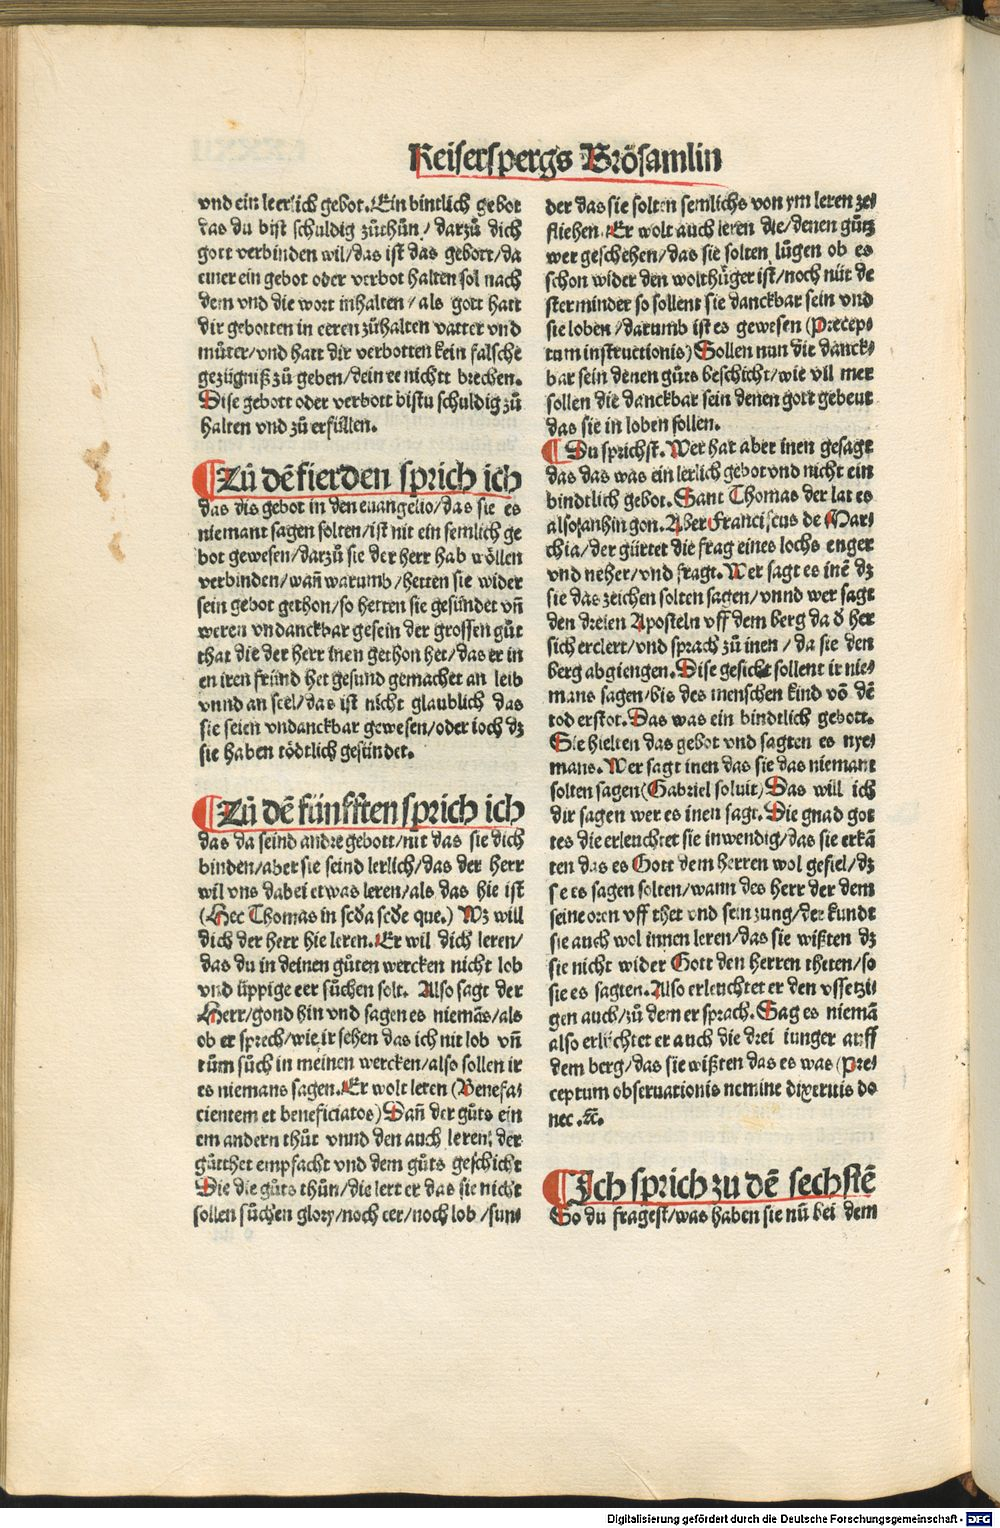 Keiserspergs Brösamlin
vnd ein leerlich gebot. Ein bintlich gebot
das du bist schuldig zůthůn / darzů dich
gott verbinden wil/das ist das gebott/da
einer ein gebot oder verbot halten sol nach
dem vnd die wort inhalten / als gott hatt
dir gebotten in eeren zůhalten vatter vnd
můter/vnd hatt dir verbotten kein falsche
gezügniß zů geben/dein ee nichtt brechen.
Dise gebott oder verbott bistu schuldig zů
halten vnd zů erfüllen.
¶Zů dē fierden sprich ich
das dis gebot in den euangelio/das sie es
niemant sagen solten/ist nit ein semlich ge
bot gewesen/darzů sie der herr hab wöllen
verbinden/wañ warumb/hetten sie wider
sein gebot gethon/so hetten sie gesündet vñ
weren vndanckbar gesein der grossen gůt
that die der herr inen gethon het/das er in
en iren fründ het gesund gemachet an leib
vnnd an seel/das ist nicht glaublich das
sie seien vndanckbar gewesen/oder ioch dz
sie haben tödtlich gesündet.
¶Zů dē fünfften sprich ich
das da seind andre gebott/nit das sie dich
binden/aber sie seind lerlich/das der herr
wil vns dabei etwas leren/als das hie ist
(Hec Thomas in scďa scďe que.) Wz will
dich der herr hie leren. Er wil dich leren/
das du in deinen gůten wercken nicht lob
vnd üppige eer sůchen solt. Also sagt der
Herr/gond hin vnd sagen es niemãs/als
ob er sprech/wie ir sehen das ich nit lob vñ
rům sůch in meinen wercken/also sollen ir
es niemans sagen. Er wolt leren (Benefa⸗
cientem et beneficiatos) Dañ der gůts ein
em andern thůt vnnd den auch leren/ der
gůtthet empfacht vnd dem gůts geschicht
Die die gůts thůn/die lert er das sie nicht
sollen sůchen glory/noch eer/noch lob /sun⸗
der das sie solten semlichs von ym leren ze⸗
fliehen. Er wolt auch leren die/denen gůtz
wer geschehen/das sie solten lůgen ob es
schon wider den wolthüger ist/noch nüt de
ster minder so sollent sie danckbar sein vnd
sie loben /darumb ist es gewesen (Precep⸗
tum instructionis) Sollen nun die danck⸗
bar sein denen gůts beschicht/wie vil mer
sollen die danckbar sein denen gott gebeut
das sie in loben sollen.
¶Du sprichst. Wer hat aber inen gesagt
das das was ein lerlich gebot vnd nicht ein
bindtlich gebot. Sant Thomas der lat es
also anhin gon. Aber Franciscus de Mar⸗
chia/der gürtet die frag eines lochs enger
vnd neher/vnd fragt. Wer sagt es inē dz
sie das zeichen solten sagen/vnnd wer sagt
den dreien Aposteln vff dem berg da ď her
sich erclert/vnd sprach zů inen / da sie den
berg abgiengen. Dise gesicht sollent ir nie⸗
mans sagen/bis des menschen kind võ dē
tod erstot. Das was ein bindtlich gebott.
Sie hielten das gebot vnd sagten es nye⸗
mans. Wer sagt inen das sie das niemant
solten sagen(Gabriel soluit) Das will ich
dir sagen wer es inen sagt. Die gnad got
tes die erleuchtet sie inwendig/das sie erkã
ten das es Gott dem herren wol gefiel/dz
s e es sagen solten/wann des herr der dem
seine oren vff thet vnd sein zung/der kundt
sie auch wol innen leren/das sie wißten dz
sie nicht wider Gott den herren theten/so
sie es sagten. Also erleuchtet er den vssetzi⸗
gen auch/zů dem er sprach. Sag es niemã
also erlüchtet er auch die drei iunger auff
dem berg/das sie wißten das es was (Pre⸗
ceptum obseruationis nemine dixeritis do
nec .⁊c̄.
¶Ich sprich zu dē sechstē
So du fragest/was haben sie nů bei dem
Digitalisierung gefördert durch die Deutsche Forschungsgemeinschaft - DFG